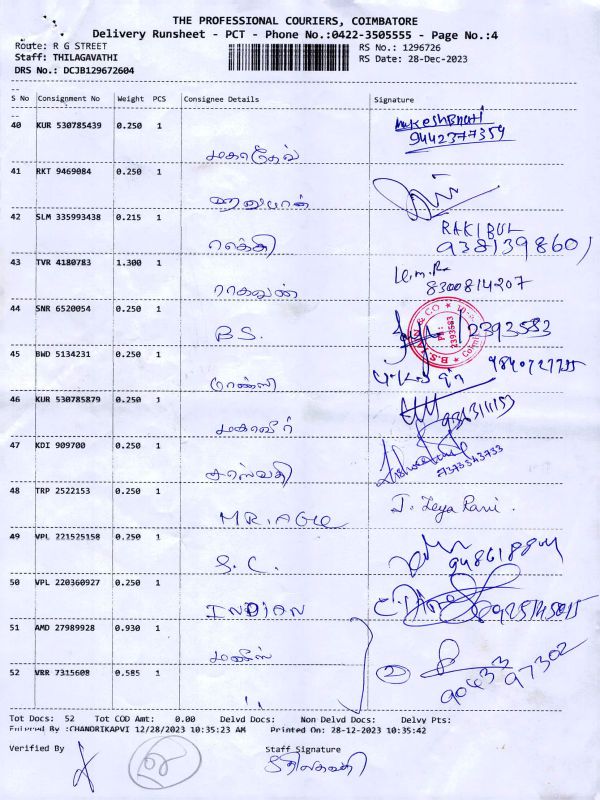 THE PROFESSIONAL COURIERS, COIMBATORE
Delivery Runsheet - PCT - Phone No.:0422-3505555 - Page No.:4
Route: R G STREET RS No.: 1296726
Staff: THILAGAVATHI RS Date: 28-Dec-2023
DRS No.: DCJB129672604
S No Consignment No Weight PCS Consignee Details Signature
40 KUR 530785439 0.250 1 மகாதேவ் 9442377359
41 RKT 9469084 0.250 1 ஹனுமான்
42 SLM 335993438 0.215 1 RAKIBUL 9381398601
43 TVR 4180783 1.300 1 ராகவன் K.m.R 8300814207
44 SNR 6520054 0.250 1 B.S. 2393583
45 BWD 5134231 0.250 1
46 KUR 530785879 0.250 1 மகாவீர்
47 KDI 909700 0.250 1 சரஸ்வதி 7373543733
48 TRP 2522153 0.250 1 J. Jeya Rani.
49 VPL 221525158 0.250 1 S.C.
50 VPL 220360927 0.250 1 INDIAN
51 AMD 27989928 0.930 1
52 VRR 7315608 0.585 1 " 2 90433 97302
Tot Docs: 52 Tot COD Amt: 0.00 Delvd Docs: Non Delvd Docs: Delvy Pts:
Entered By :CHANDRIKAPVI 12/28/2023 10:35:23 AM Printed On: 28-12-2023 10:35:42
Verified By Staff Signature
திலகவதி